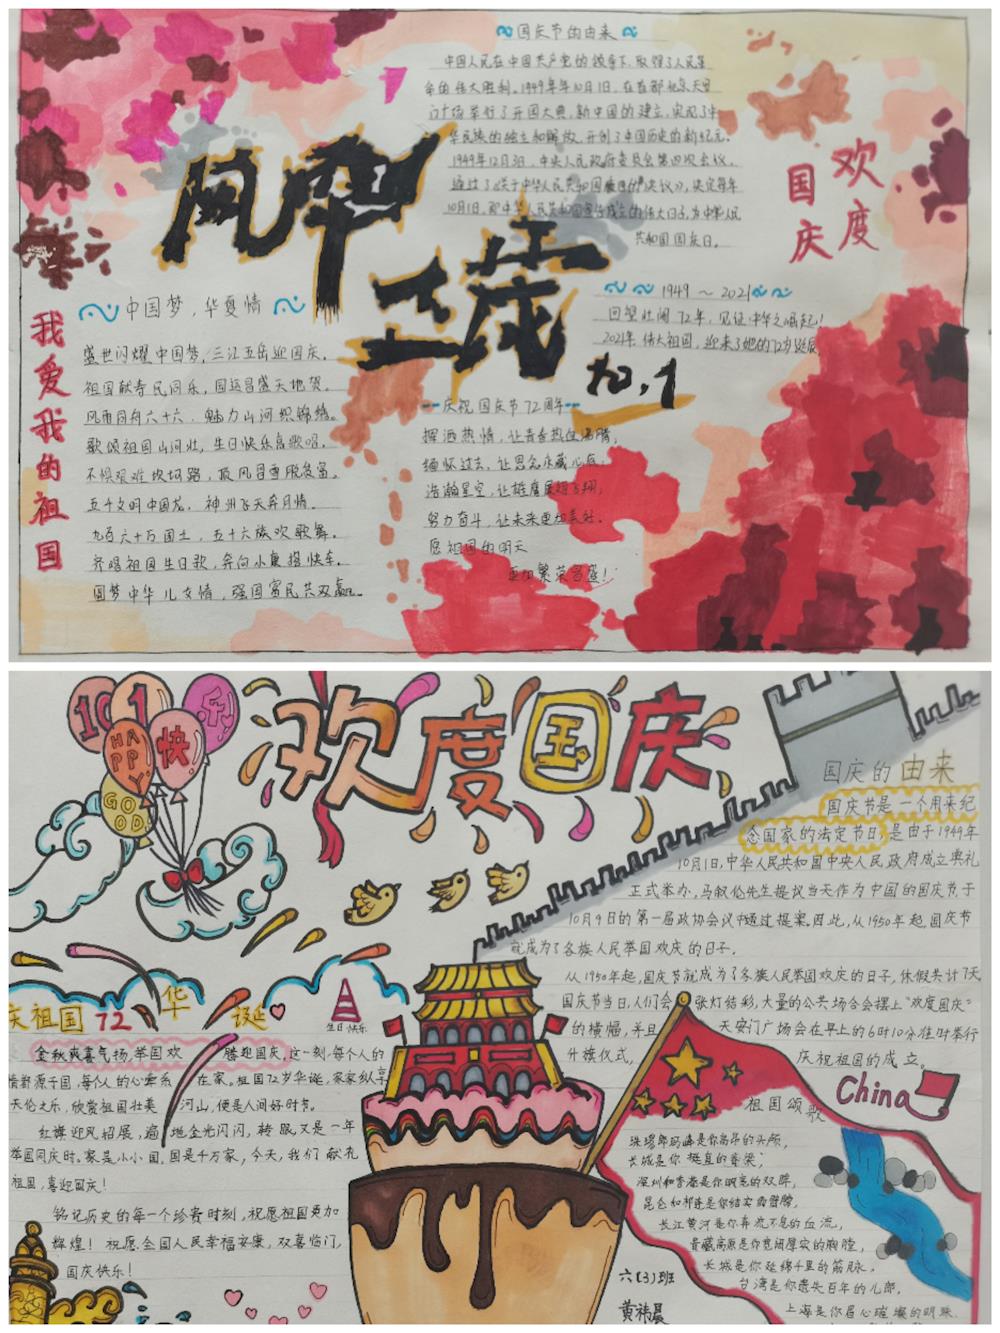 国庆节的由来
中国人民在中国共产党的领导下,取得了人民革
命的伟大胜利。1949年10月1日,在首都北京天安
门广场举行了开国大典,新中国的建立,实现了中
华民族的独立和解放,开创了中国历史的新纪元。
1949年12月3日,中央人民政府委员会第四次会议,
通过了《关于中华人民共和国国庆日的决议》,决定每年
10月1日,即中华人民共和国宣告成立的伟大日子,为中华人民
共和国国庆日。
欢度
国庆
1949～2021
回望壮阔72年,见证中华之崛起!
2021年伟大祖国,迎来了她的72岁诞辰
10.1
我爱我的祖国
中国梦,华夏情
盛世闪耀中国梦,三江五岳迎国庆。
祖国献寿民同乐,国运昌盛天地贺。
风雨同舟六十六,魅力山河织锦绣。
歌颂祖国山河壮,生日快乐高歌唱。
不惧艰难坎坷路,
五千文明中国龙,神州飞天奔月情。
九百六十万国土,五十六族欢歌舞。
齐唱祖国生日歌,奔向小康搭快车。
圆梦中华儿女情,强国富民共双赢。
庆祝国庆节72周年
挥洒热情,让青春热血沸腾;
缅怀过去,让思念永藏心底;
浩瀚星空,让雄鹰展翅飞翔;
努力奋斗,让未来更加美好。
愿祖国的明天
更加繁荣昌盛!
10 1 快乐
HAPPY
GOOD
欢度国庆
国庆的由来
国庆节是一个用来纪
念国家的法定节日,是由于1949年
10月1日,中华人民共和国中央人民政府成立典礼
正式举办,马叙伦先生提议当天作为中国的国庆节于
10月9日的第一届政协会议中通过提案。因此,从1950年起国庆节
就成为了各族人民举国欢庆的日子。
从1950年起,国庆节就成为了各族人民举国欢庆的日子,休假共计7天
国庆节当日,人们会张灯结彩,大量的公共场合会摆上"欢度国庆"
的横幅,并且天安门广场会在早上的6时10分准时举行
升旗仪式,庆祝祖国的成立。
庆祖国72华诞
生日快乐
金秋爽喜气扬,举国欢腾迎国庆,这一刻,每个人的
情都源于国,每个人的心牵系在家。祖国72岁华诞,家家纵享
天伦之乐,欣赏祖国壮美河山,便是人间好时节。
红旗迎风招展,遍地金光闪闪,转眼又是一年
举国同庆时。家是小小国,国是千万家,今天,我们献礼
祖国,喜迎国庆!
铭记历史的每一个珍贵时刻,祝愿祖国更加
辉煌!祝愿全国人民幸福安康,双喜临门,
国庆快乐!
China
祖国颂歌
珠穆朗玛峰是你高昂的头颅,
长城是你挺直的脊梁;
深圳和香港是你明亮的双眸,
昆仑和祁连是你结实的臂膀,
长江黄河是你奔流不息的血流,
青藏高原是你宽阔厚实的胸膛,
长城是你延绵千里的筋脉,
台湾是你遗失百年的儿郎,
上海是你眉心璀璨的明珠,
六(3)班
黄祎晨